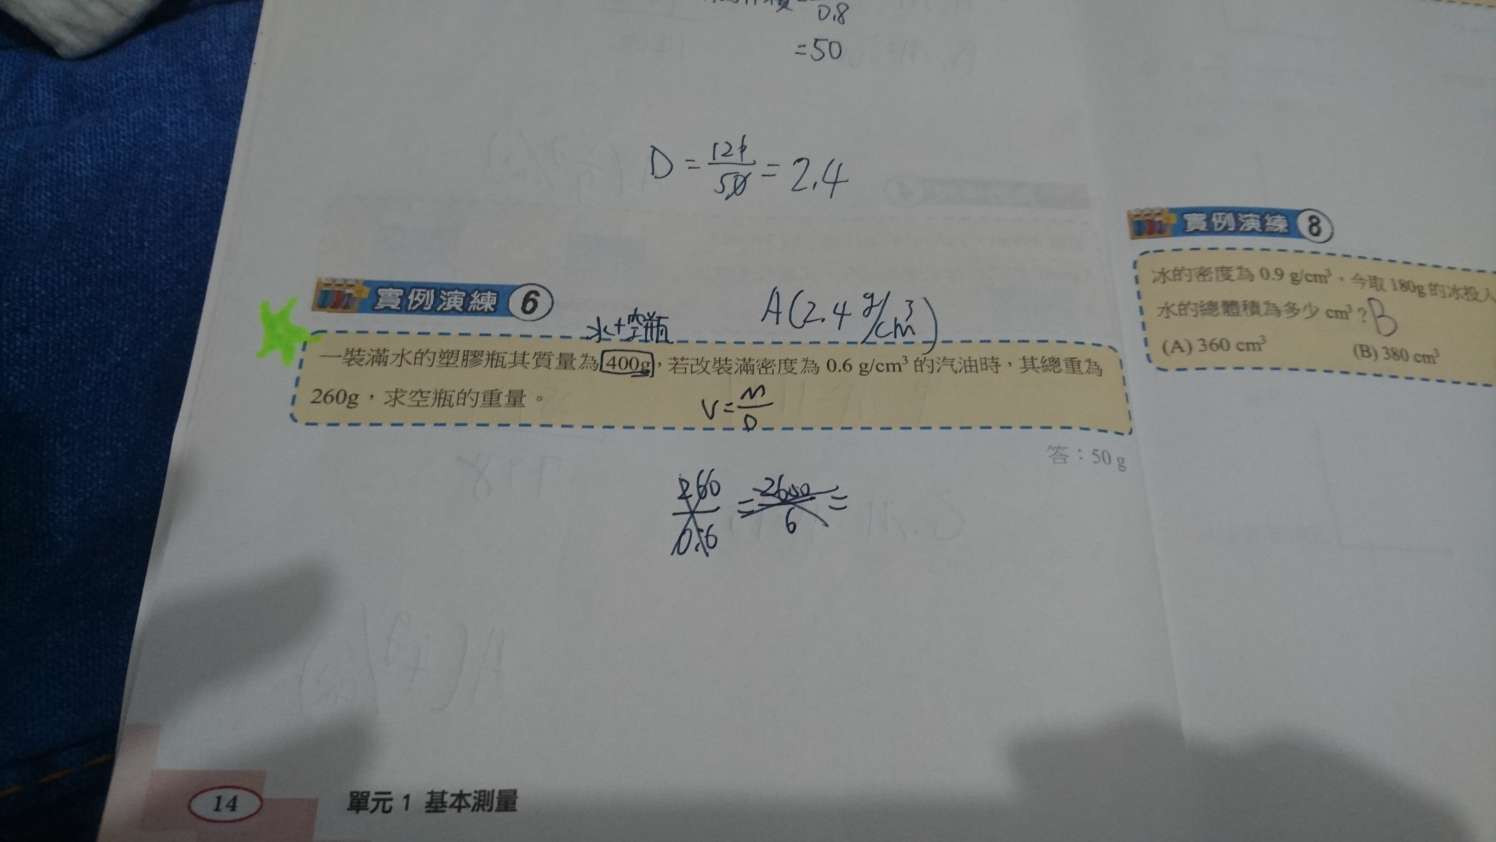 0.8
=50
D = 12ɸ/5ɸ = 2.4
實例演練 6
水+空瓶
A(2.4 g/cm³)
一裝滿水的塑膠瓶其質量為400g，若改裝滿密度為 0.6 g/cm³ 的汽油時，其總重為
260g，求空瓶的重量。
V=M/D
答：50 g
260/0.6 = 2600/6 =
14
單元 1 基本測量
實例演練 8
冰的密度為 0.9 g/cm³，今取 180g 的冰投入
水的總體積為多少 cm³？B
(A) 360 cm³
(B) 380 cm³